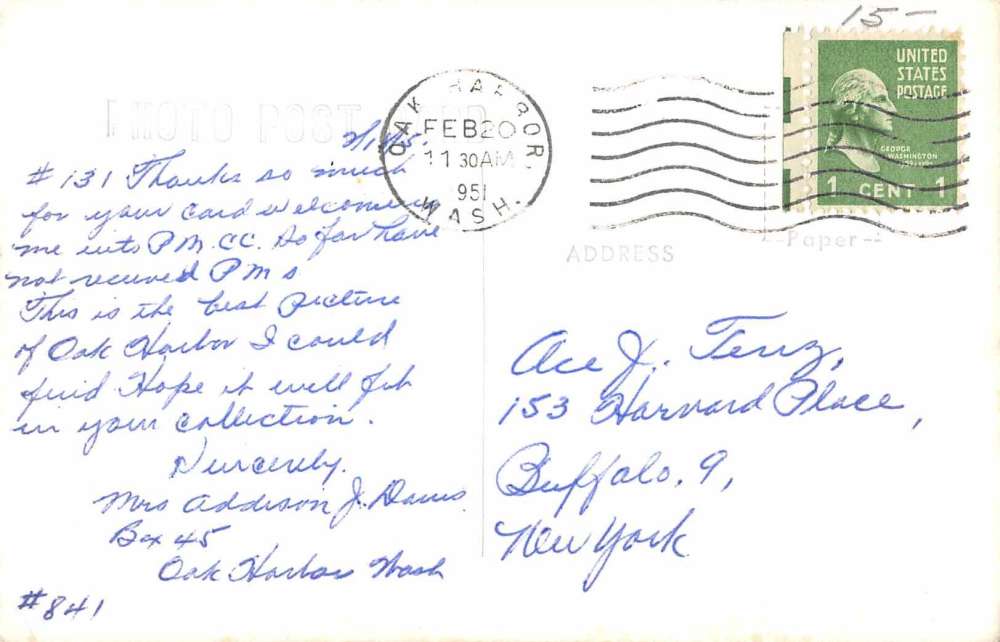 15-
PHOTO POST CARD
OAK HARBOR,
FEB 20
11 30 AM
1951
WASH.
UNITED
STATES
POSTAGE
GEORGE
WASHINGTON
1 CENT 1
ADDRESS
--Paper--
# 131 Thanks so much
for your card welcoming
me into P.M.CC. So far have
not received P M s
This is the best picture
of Oak Harbor I could
find Hope it will fit
in your collection.
Sincerely.
Mrs Addison J. Davis
Box 45
Oak Harbor Wash
#841
Ace J. Tenz,
153 Harvard Place,
Buffalo, 9,
New York